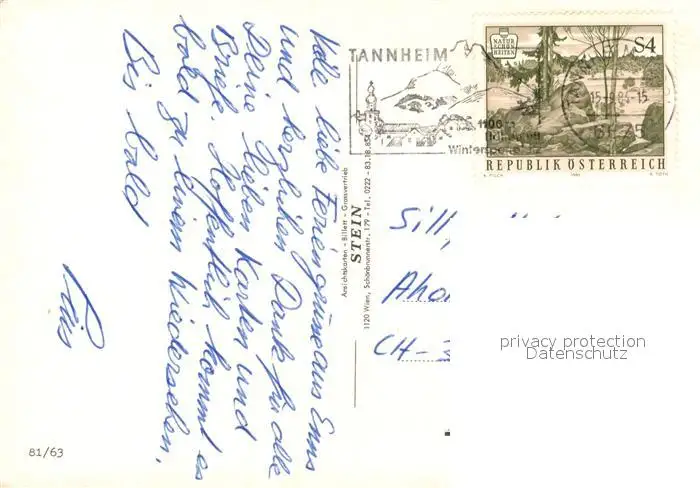 Viele liebe Feriengrüsse aus Enns
und herzlichen Dank für alle
Deine lieben Karten und
Briefe. Hoffentlich kommt es
bald zu einem Wiedersehen.
Bis bald
81/63
Ansichtskarten - Billett - Grossvertrieb
STEIN
1120 Wien, Schönbrunnerstr. 179 - Tel. 0222 - 83 18 85
TANNHEIM
1100 m
Winterspo
NATUR
SCHÖN
HEITEN
S4
15.-9.84-15
REPUBLIK ÖSTERREICH
A. PILCH
1984
K. TOTH
Silly
CH-
privacy protection
Datenschutz